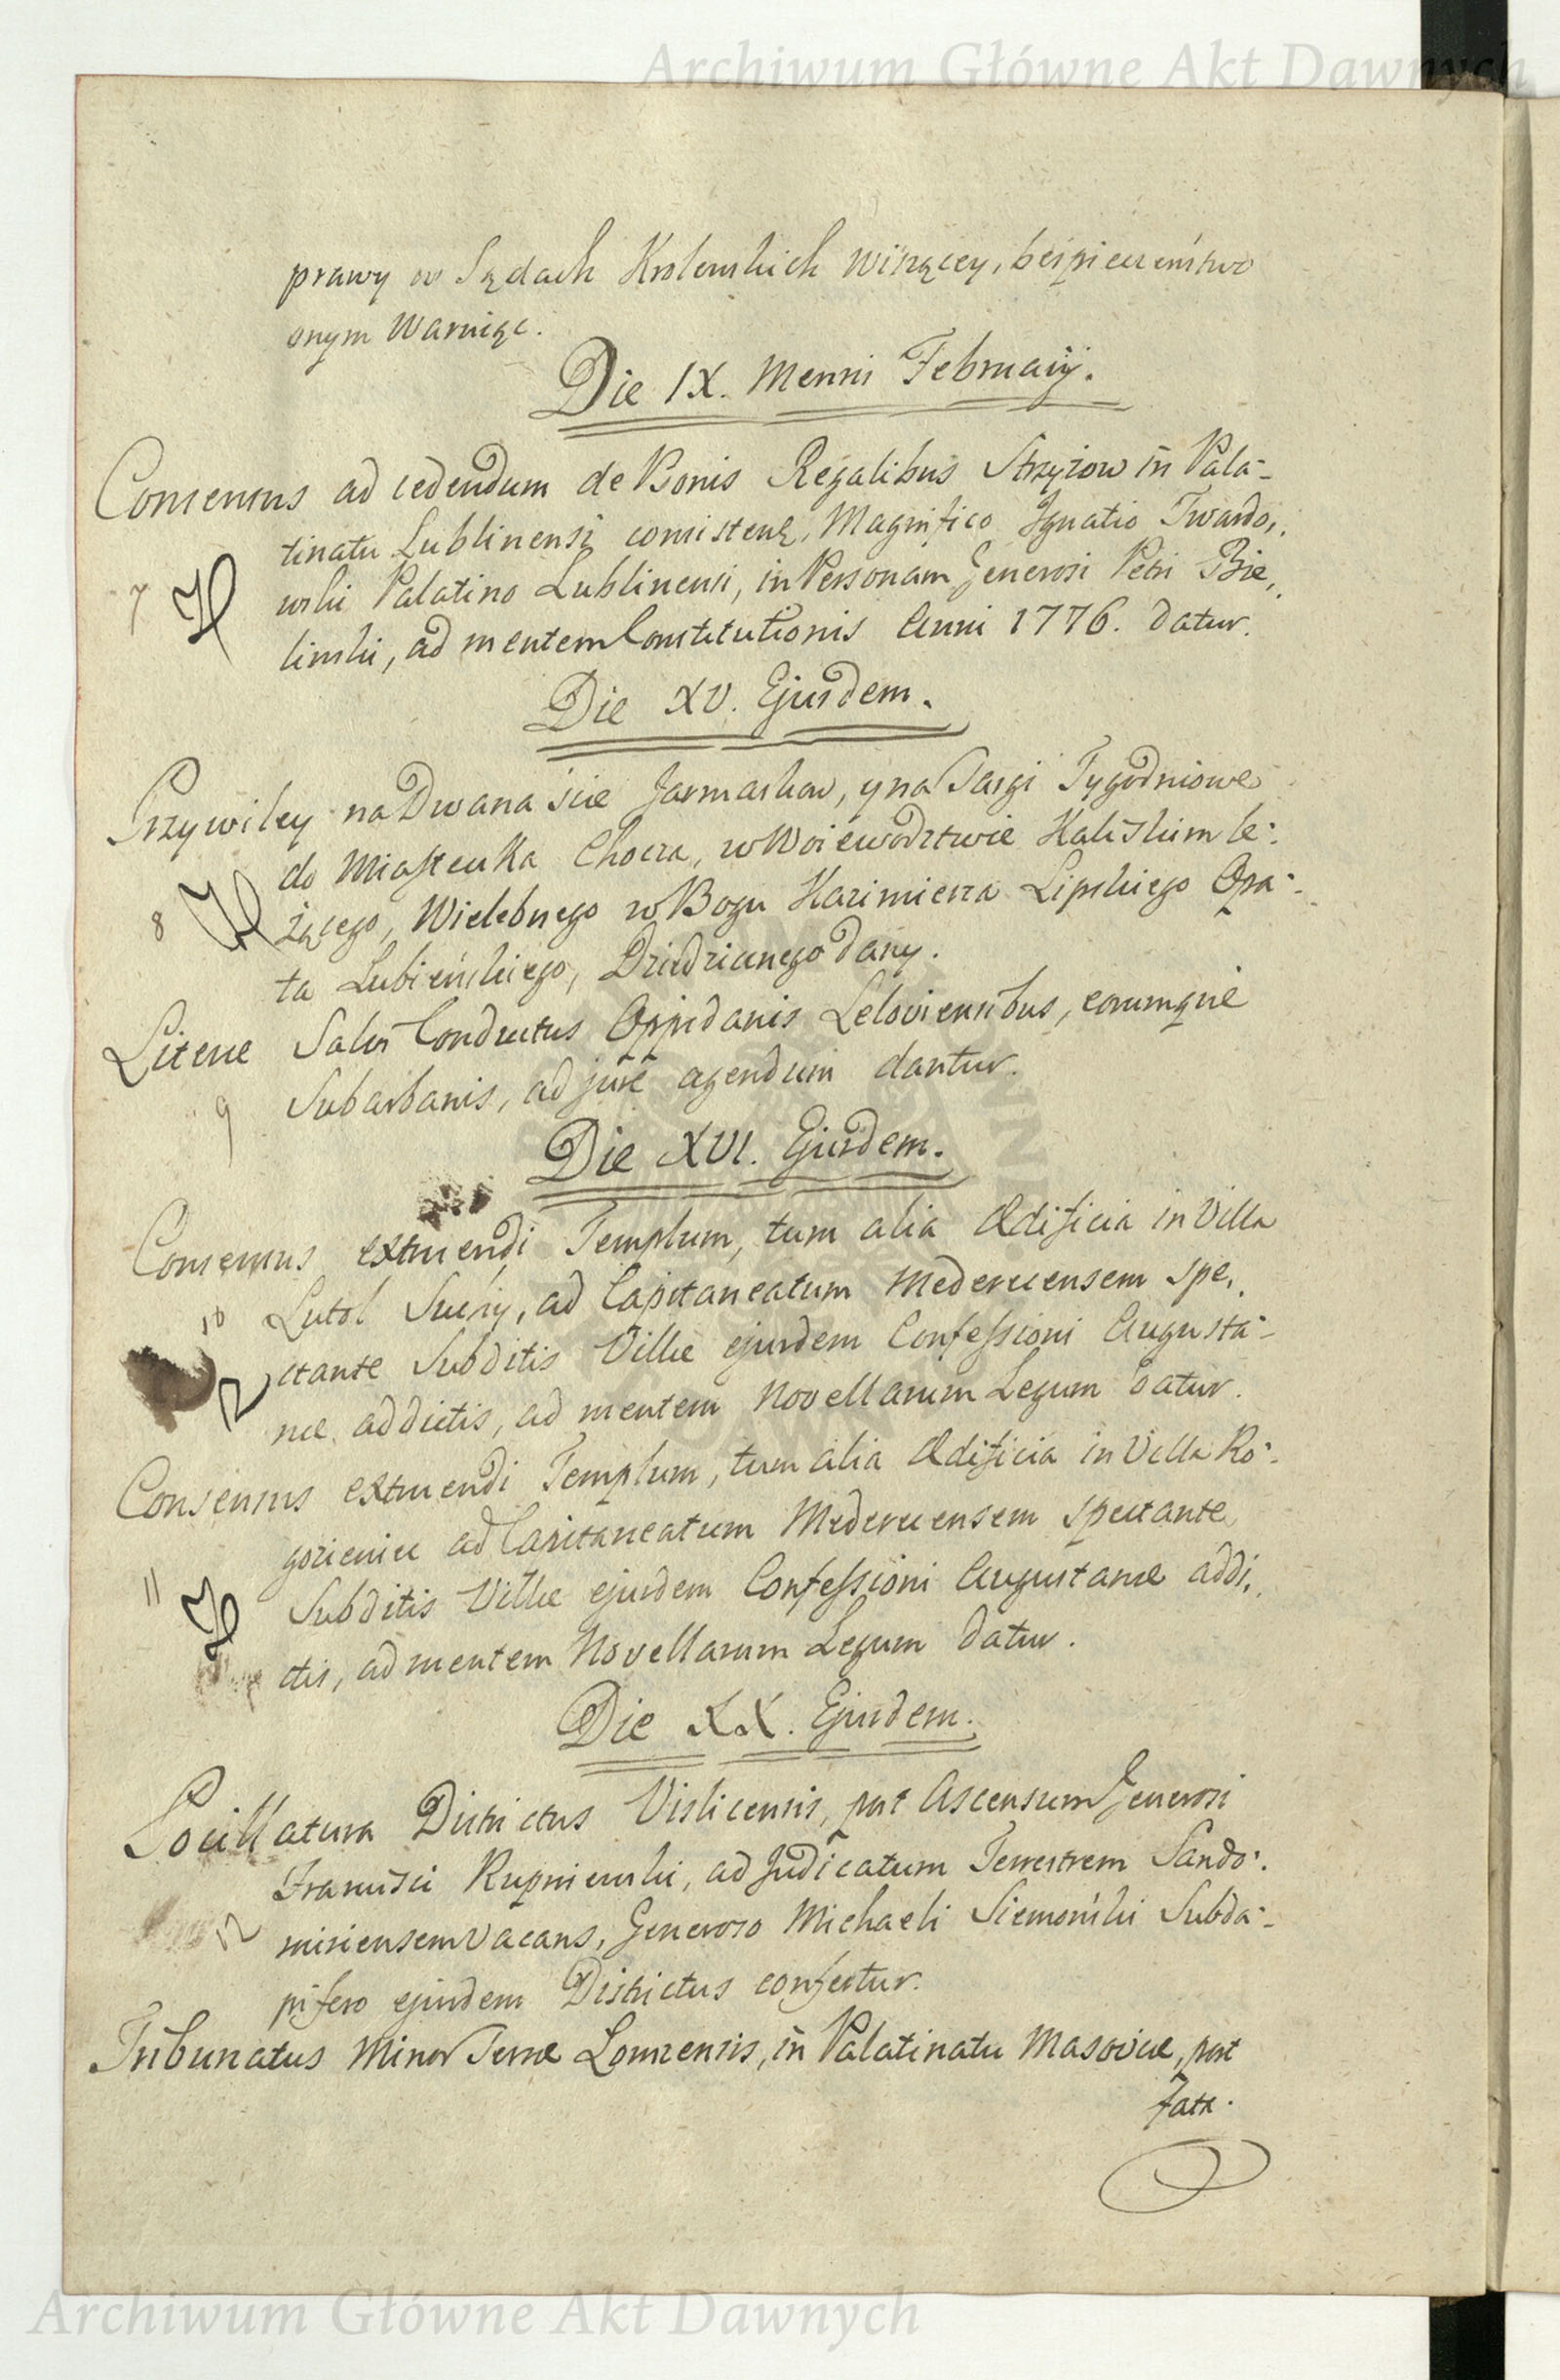 Archiwum Główne Akt Dawnych
prawy w Sądach Krolewskich wiszącey, bespieczeństwo
onym Waruiąc.
Die IX. Mensis Februarij.
Consensus ad cedendum de Bonis Regalibus Strzyżow in Pala-
tinatu Lublinensi consistenż, Magnifico Ignatio Twardo,,
wski Palatino Lublinensi, in Personam Generosi Petri Bie,,
7
linski, ad mentem Constitutionis Anni 1776. datur.
Die XV. Ejusdem.
Przywiley na Dwanaście Jarmarkow, y na Targi Tygodniowe
do Miasteczka Chocza, w Woiewodztwie Kaliskim le-
8
żącego, Wielebnego w Bogu Kazimierza Lipskiego Opa-
ta Lubieńskiego, Dziedzicznego dany.
Literæ Salvi Conductus Oppidanis Leloviensibus, eorumque
9
Suburbanis, ad jure agendum dantur.
Die XVI. Ejusdem.
Consensus extruendi Templum, tum alia Ædificia in Villa
10
Lutol Suchy, ad Capitaneatum Mederecensem spe,,
ctante Subditis Villæ ejusdem Confessioni Augusta-
næ addictis, ad mentem Novellarum Legum datur.
Consensus extruendi Templum, tum alia Ædificia in Villa Ro-
gozieniec ad Capitaneatum Mederecensem spectante
11
Subditis Villæ ejusdem Confessioni Augustanæ addi,,
ctis, ad mentem Novellarum Legum datur.
Die XX. Ejusdem.
Pocillatura Districtus Vislicensis, post Ascensum Generosi
Francisci Rupniewski, ad Judicatum Terrestrem Sando-
12
miriensem vacans, Generoso Michaeli Siemoński Subda-
pifero ejusdem Districtus confertur.
Tribunatus Minor Terræ Lomzensis, in Palatinatu Masoviæ, post
Fata.
Archiwum Główne Akt Dawnych